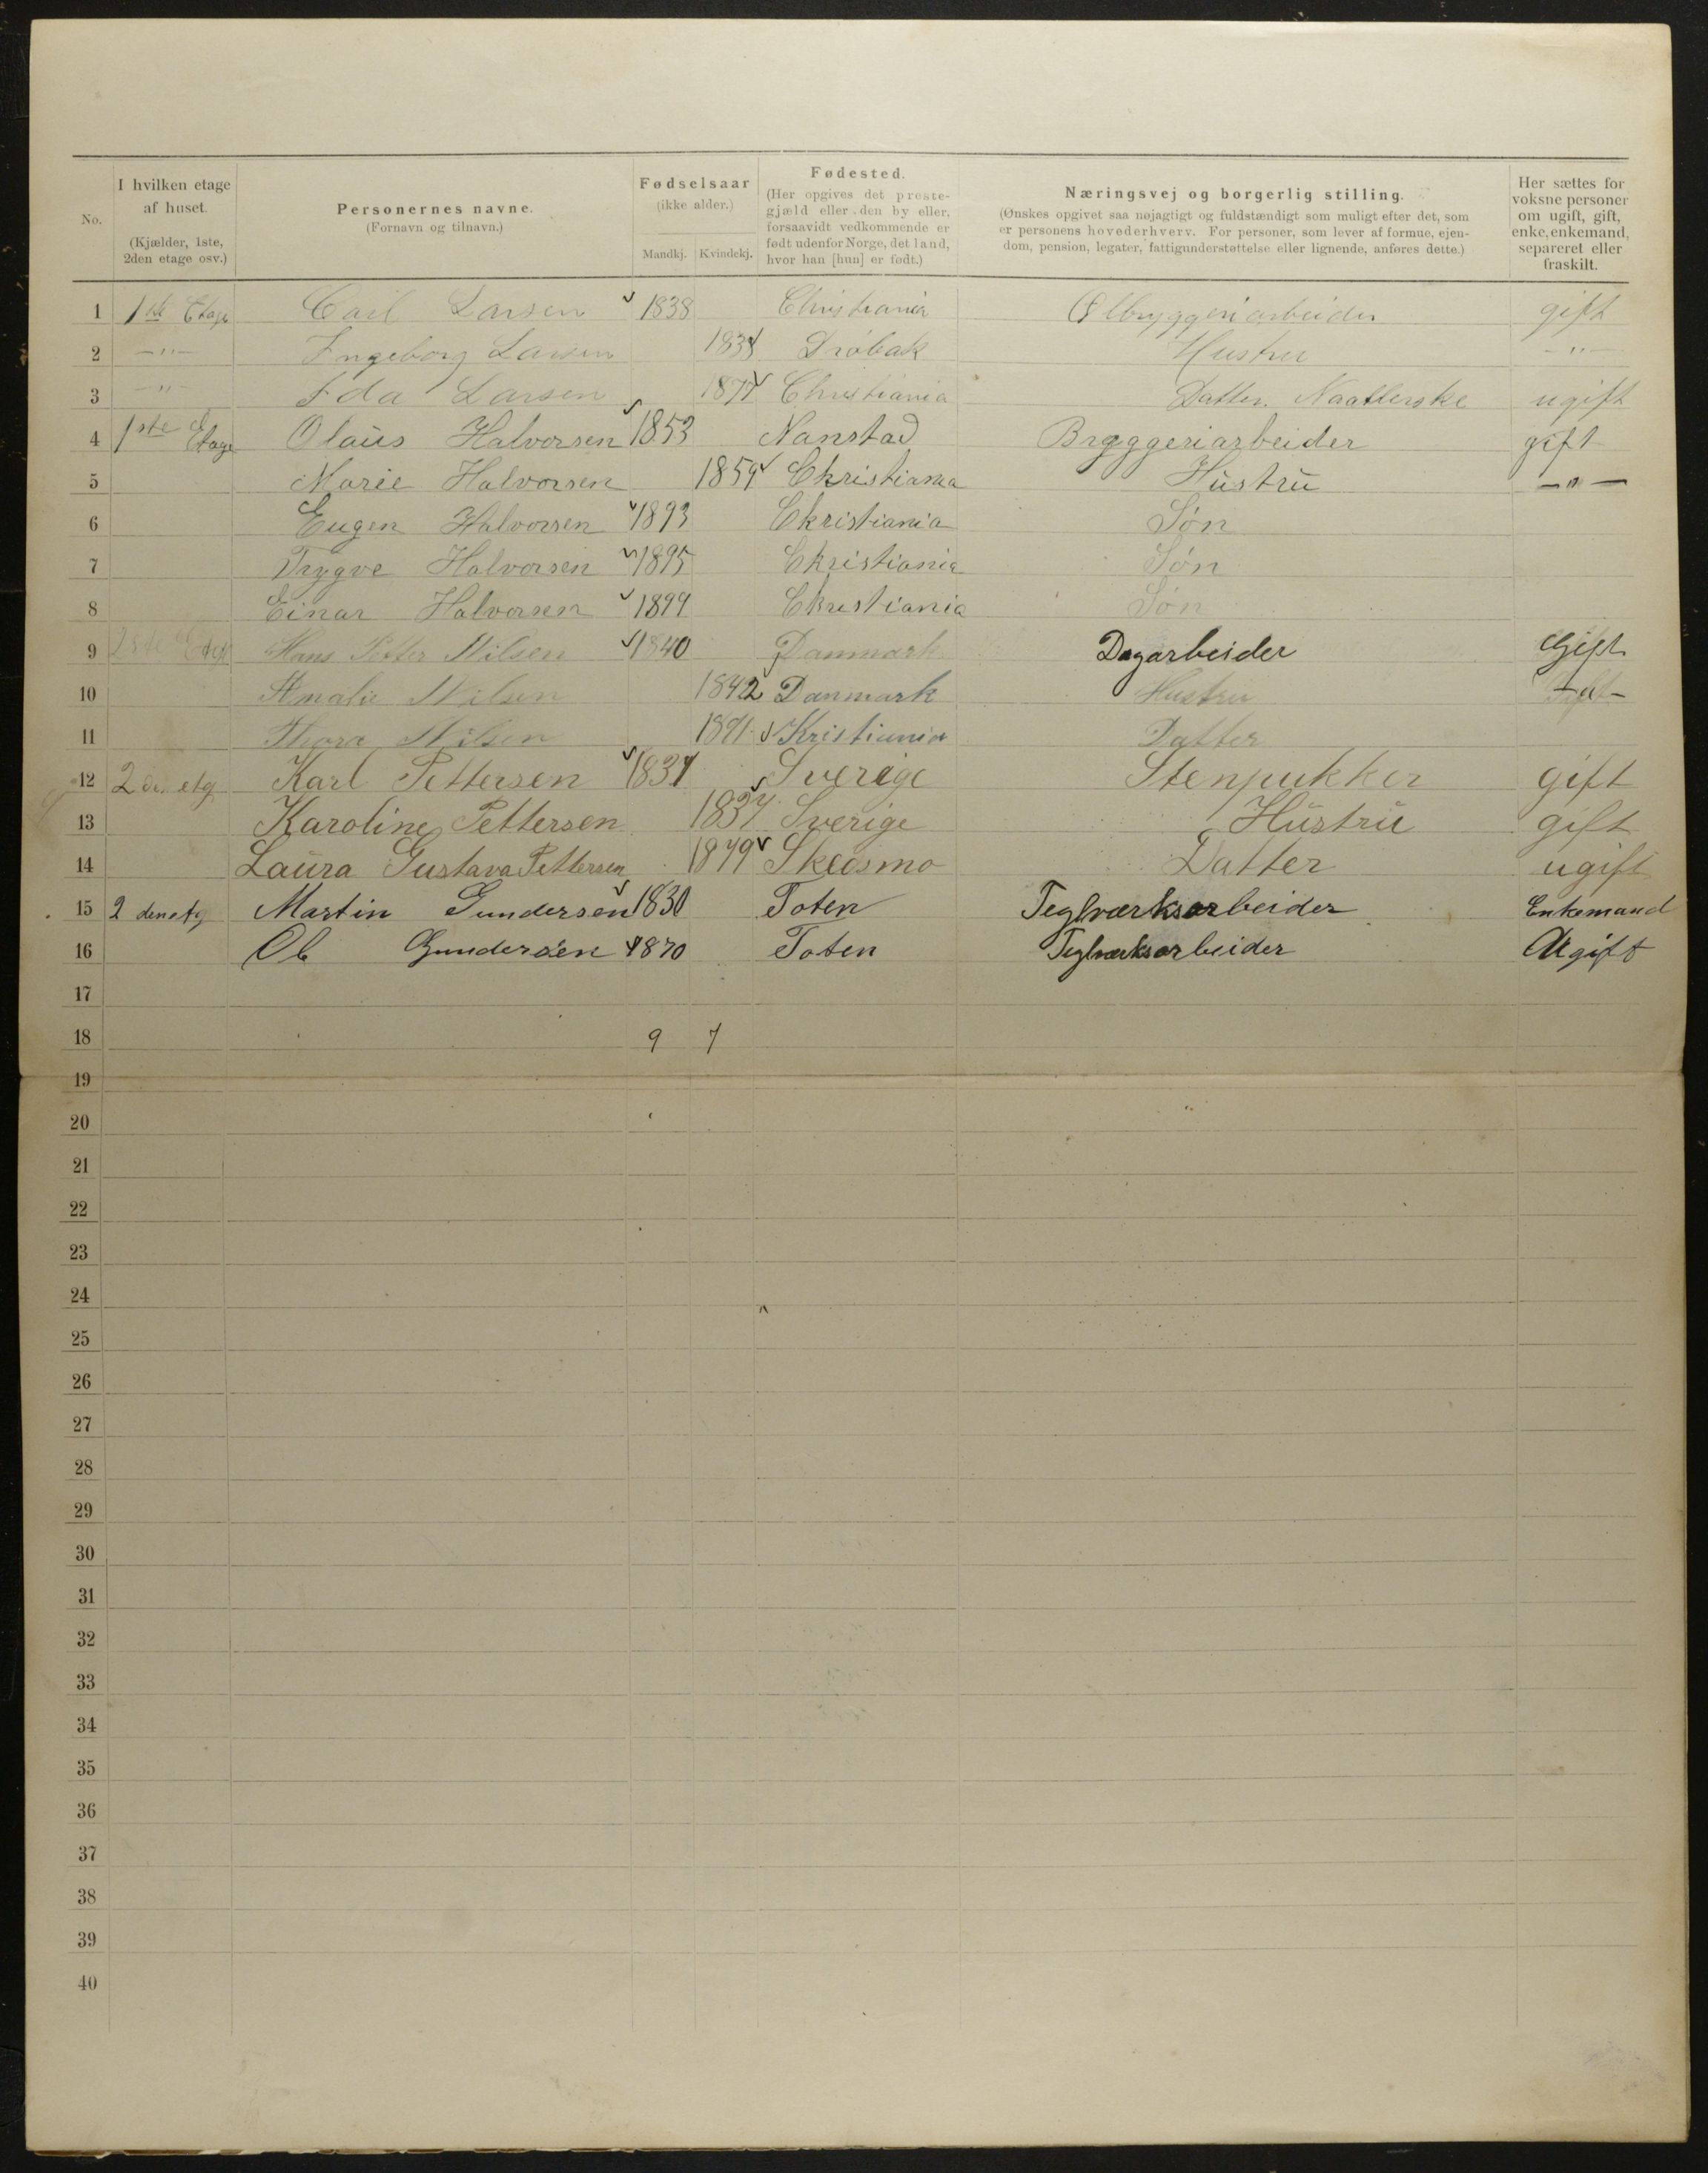 No. | I hvilken etage af huset. (Kjælder, 1ste, 2den etage osv.) | Personernes navne. (Fornavn og tilnavn.) | Fødselsaar (ikke alder.) Mandkj. Kvindekj. | Fødested. (Her opgives det prestegjæld eller den by eller, forsaavidt vedkommende er født udenfor Norge, det land, hvor han [hun] er født.) | Næringsvej og borgerlig stilling. (Ønskes opgivet saa nøjagtigt og fuldstændigt som muligt efter det, som er personens hovederhverv. For personer, som lever af formue, ejendom, pension, legater, fattigunderstøttelse eller lignende, anføres dette.) | Her sættes for voksne personer om ugift, gift, enke, enkemand, separeret eller fraskilt.
1 1ste Etage Carl Larsen 1838 Christiania Ølbryggeriarbeider gift
2 —"— Ingeborg Larsen Drøbak Hustru —"—
3 —"— Ida Larsen Christiania Datter. Naatterske ugift
4 1ste Etage Olaüs Halvorsen 1853 Nanstad Bryggeriarbeider gift
5 Marie Halvorsen 1859 Christiania Hüstrü —"—
6 Eugen Halvorsen 1893 Christiania Søn
7 Trygve Halvorsen 1895 Christiania Søn
8 Einar Halvorsen 1899 Christiania Søn
9 2den Etage Hans Petter Nilsen 1840 Danmark Dagarbeider Gift
10 Amalie Nilsen 1842 Danmark Hustru —"—
11 Thora Nilsen 1891 Kristiania Datter
12 2den etg Karl Pettersen 1837 Sverige Stenpukker gift
13 Karoline Pettersen 1837 Sverige Hüstrü gift
14 Laüra Gustava Pettersen 1879 Skedsmo Datter ugift
15 2 den etg Martin Gundersen 1830 Toten Teglværksarbeider Enkemand
16 Ole Gundersen 1870 Toten Teglværksarbeider Ugift
17
18 9 7
19
20
21
22
23
24
25
26
27
28
29
30
31
32
33
34
35
36
37
38
39
40